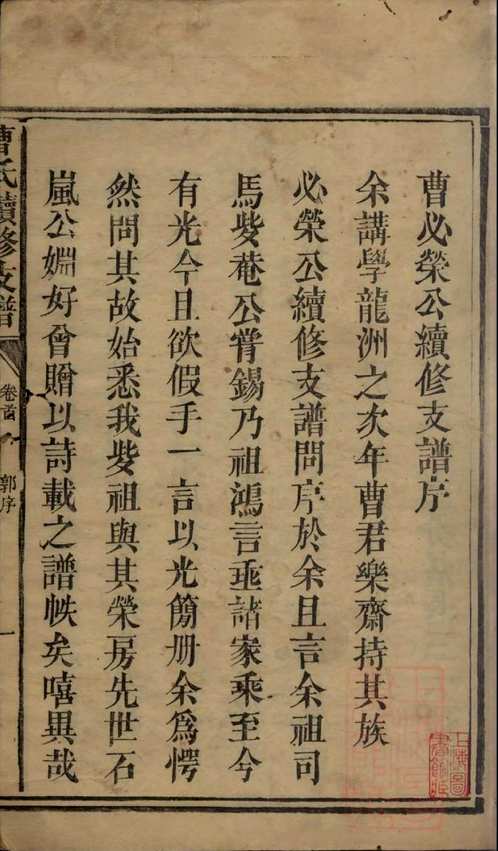 曹必榮公續修支譜序
余講學龍洲之次年曹君樂齋持其族
必榮公續修支譜問序於余且言余祖司
馬裝菴公嘗錫乃祖鴻言垂諸家乘至今
有光今且欲假手一言以光簡册余爲愕
然問其故始悉我裝祖與其榮房先世石
嵐公婣好曾贈以詩載之譜帙矣嘻異哉
曹氏續修支譜
卷首
郭序
一